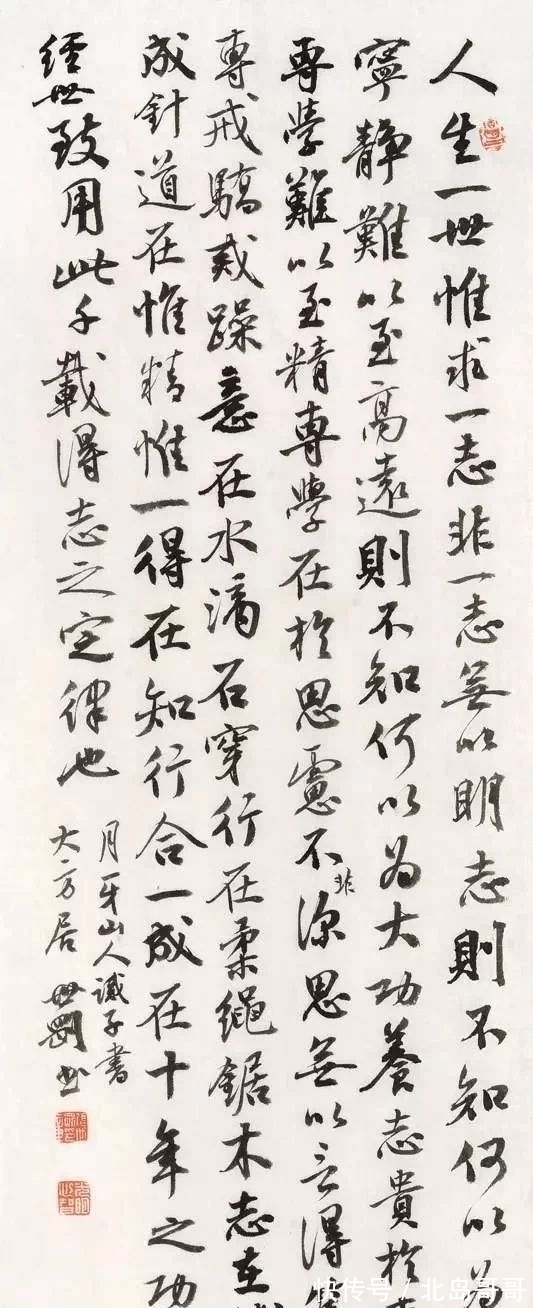 人生一世惟求一志非一志無以明志則不知何以為
寧靜難以至高遠則不知何以为大功養志貴於
專學難以至精專學在於思慮不深思無以言得
非
專戒驕戒躁意在水滴石穿行在柔繩鋸木志在
成針道在惟精惟一得在知行合一成在十年之功
經世致用此千載得志之定律也
月牙山人誡子書
大方居世劉书
快传号/北岛哥哥